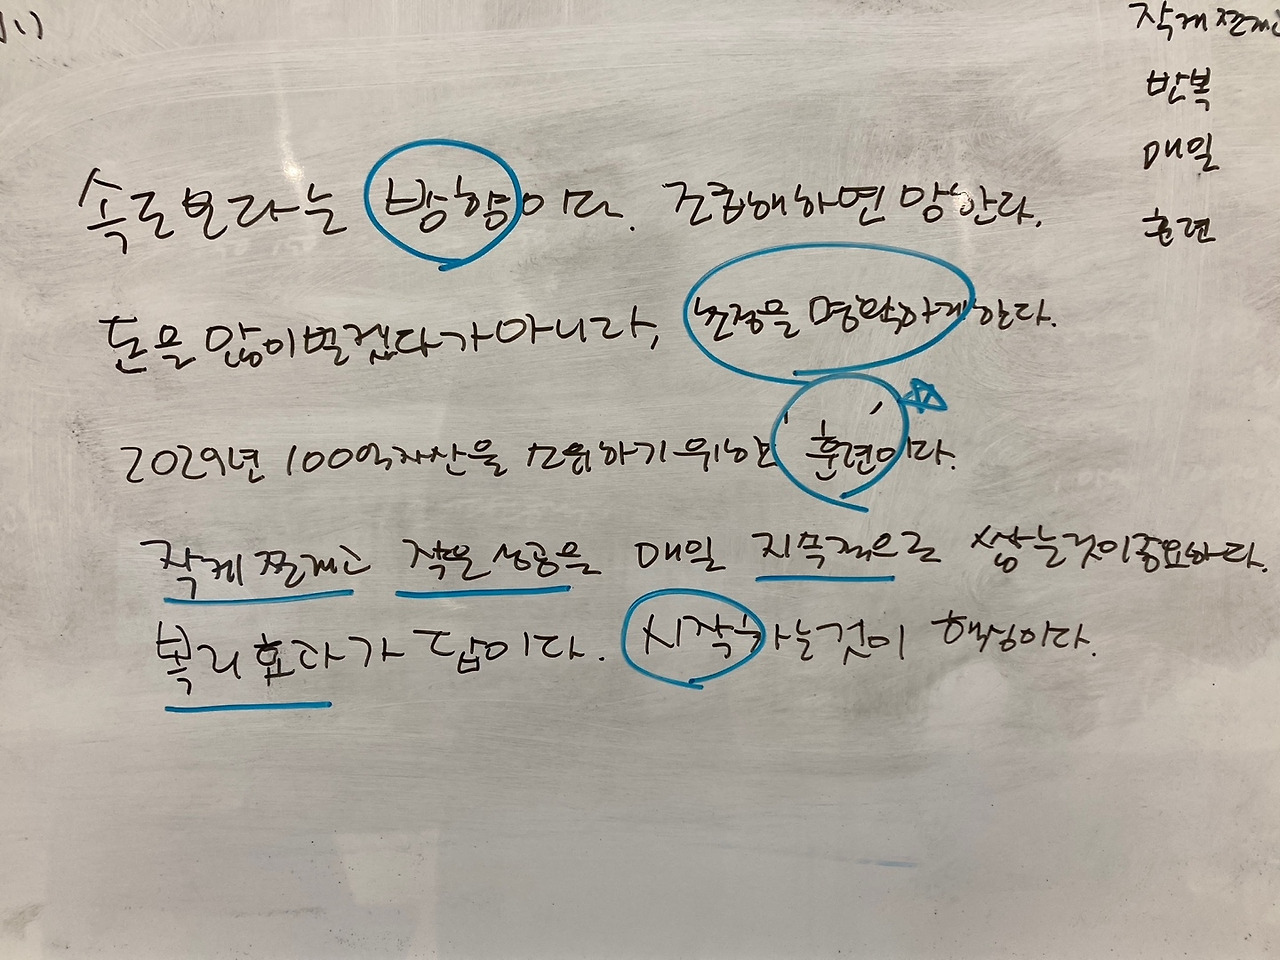 작게 쪼개고
반복
매일
훈련
속도보다는 방향이다. 조급해하면 망한다.
돈을 많이벌겠다가아니라, 초점을 명확하게한다.
2029년 100억자산을 소유하기위한 '훈련'이다.
작게 쪼개고 작은 성공을 매일 지속적으로 쌓는것이중요하다.
복리효과가 답이다. 시작하는것이 핵심이다.